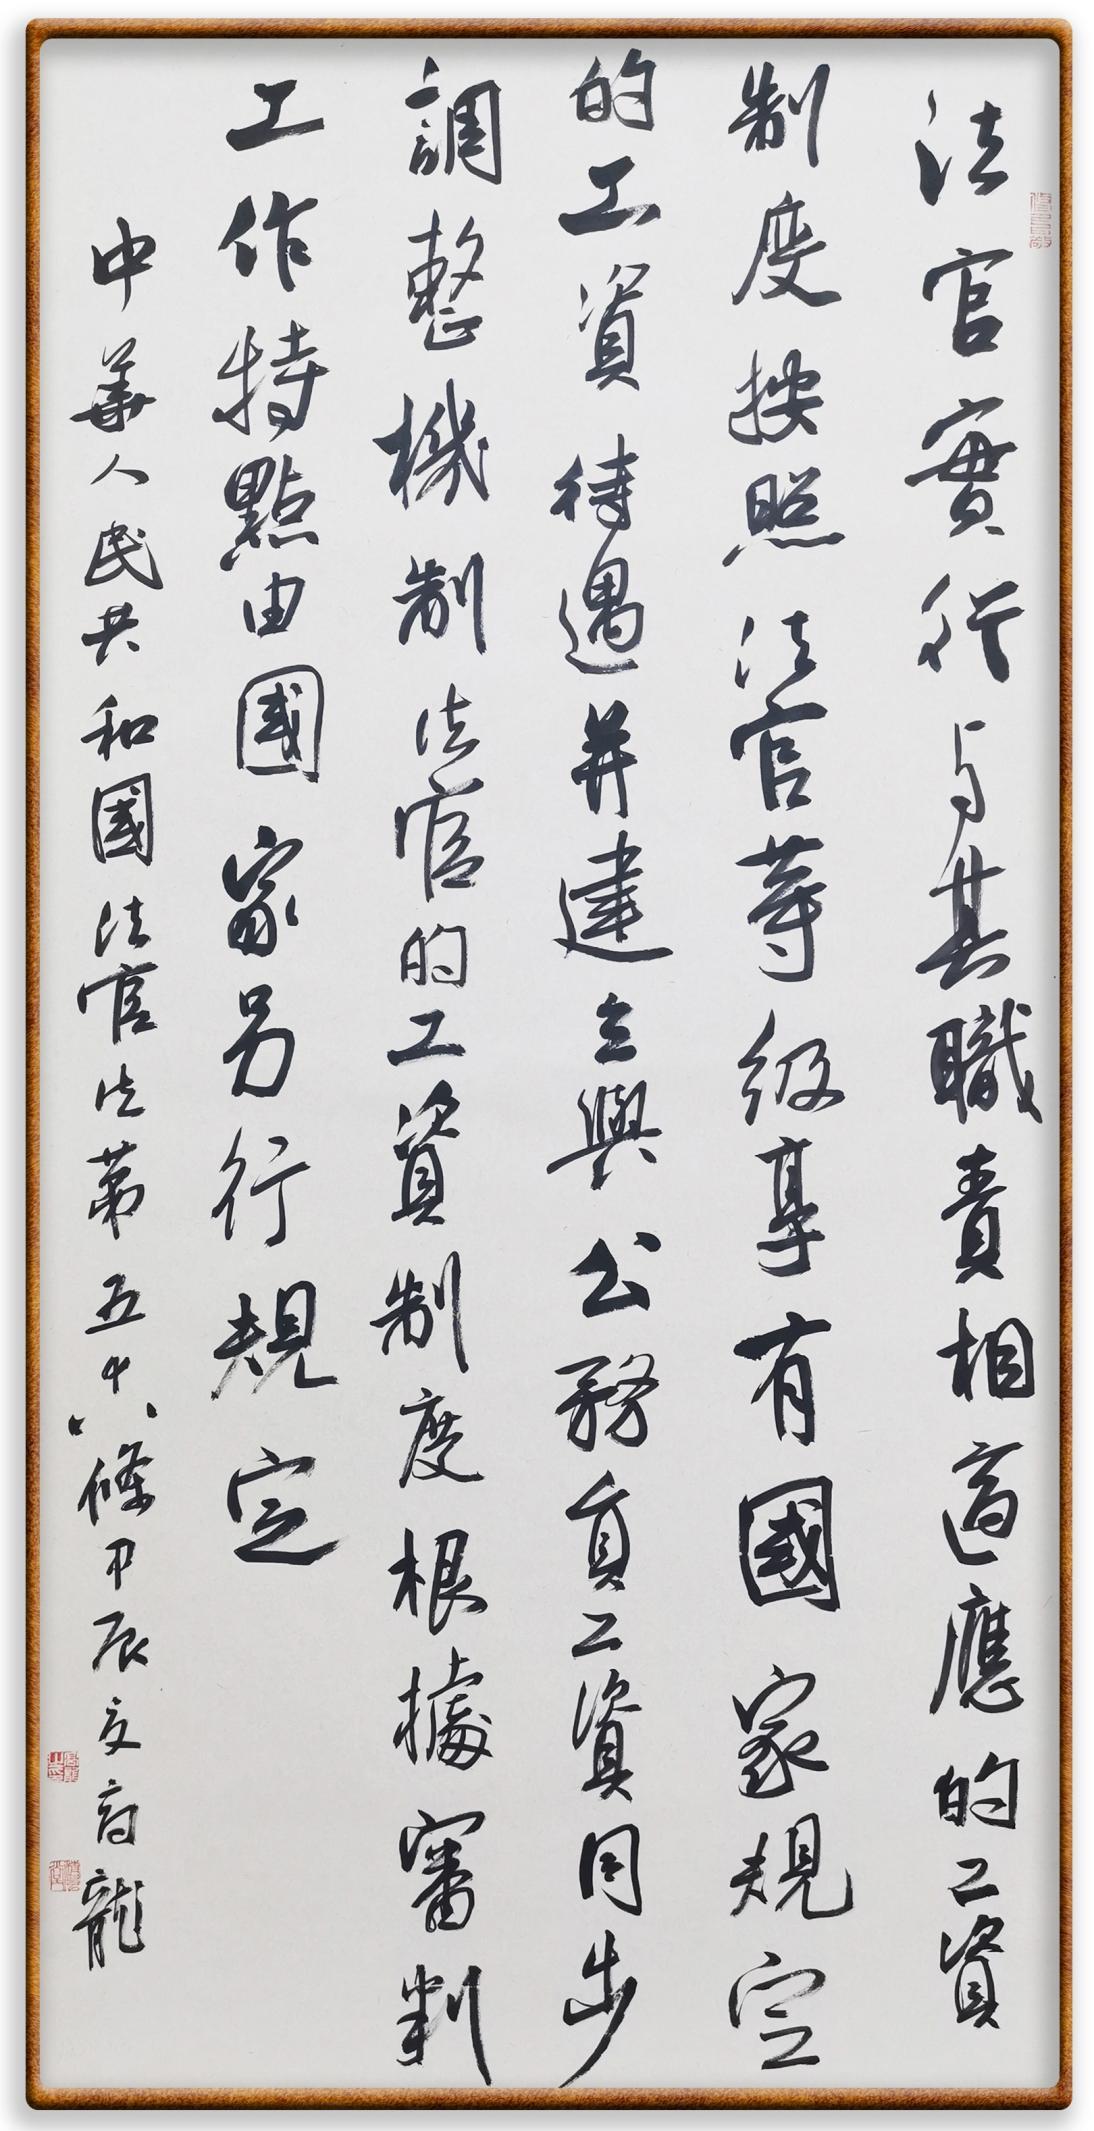 法官實行与其職責相適應的工資
制度按照法官等級享有國家規定
的工資待遇并建立與公務員工資同步
調整機制法官的工資制度根據審判
工作特點由國家另行規定
中華人民共和國法官法第五十八條甲辰文龍